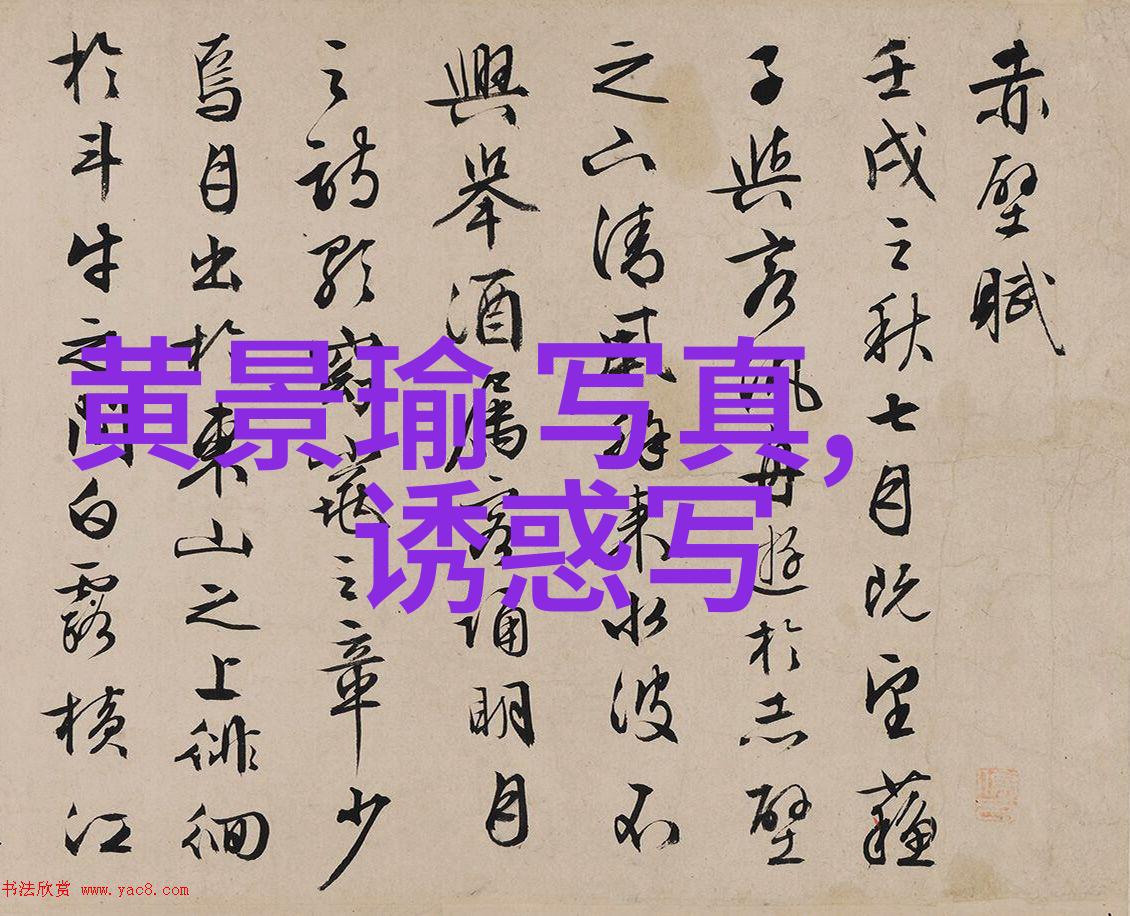 赤壁賦
壬戌之秋七月既望蘇
子與客汎舟遊於赤壁
之下清風徐來水波不
興舉酒屬客誦明月
之詩歌窈窕之章少
焉月出於東山之上徘徊
於斗牛之間白露橫江
黄景瑜 写真,
诱惑写
书法欣赏 www.yac8.com